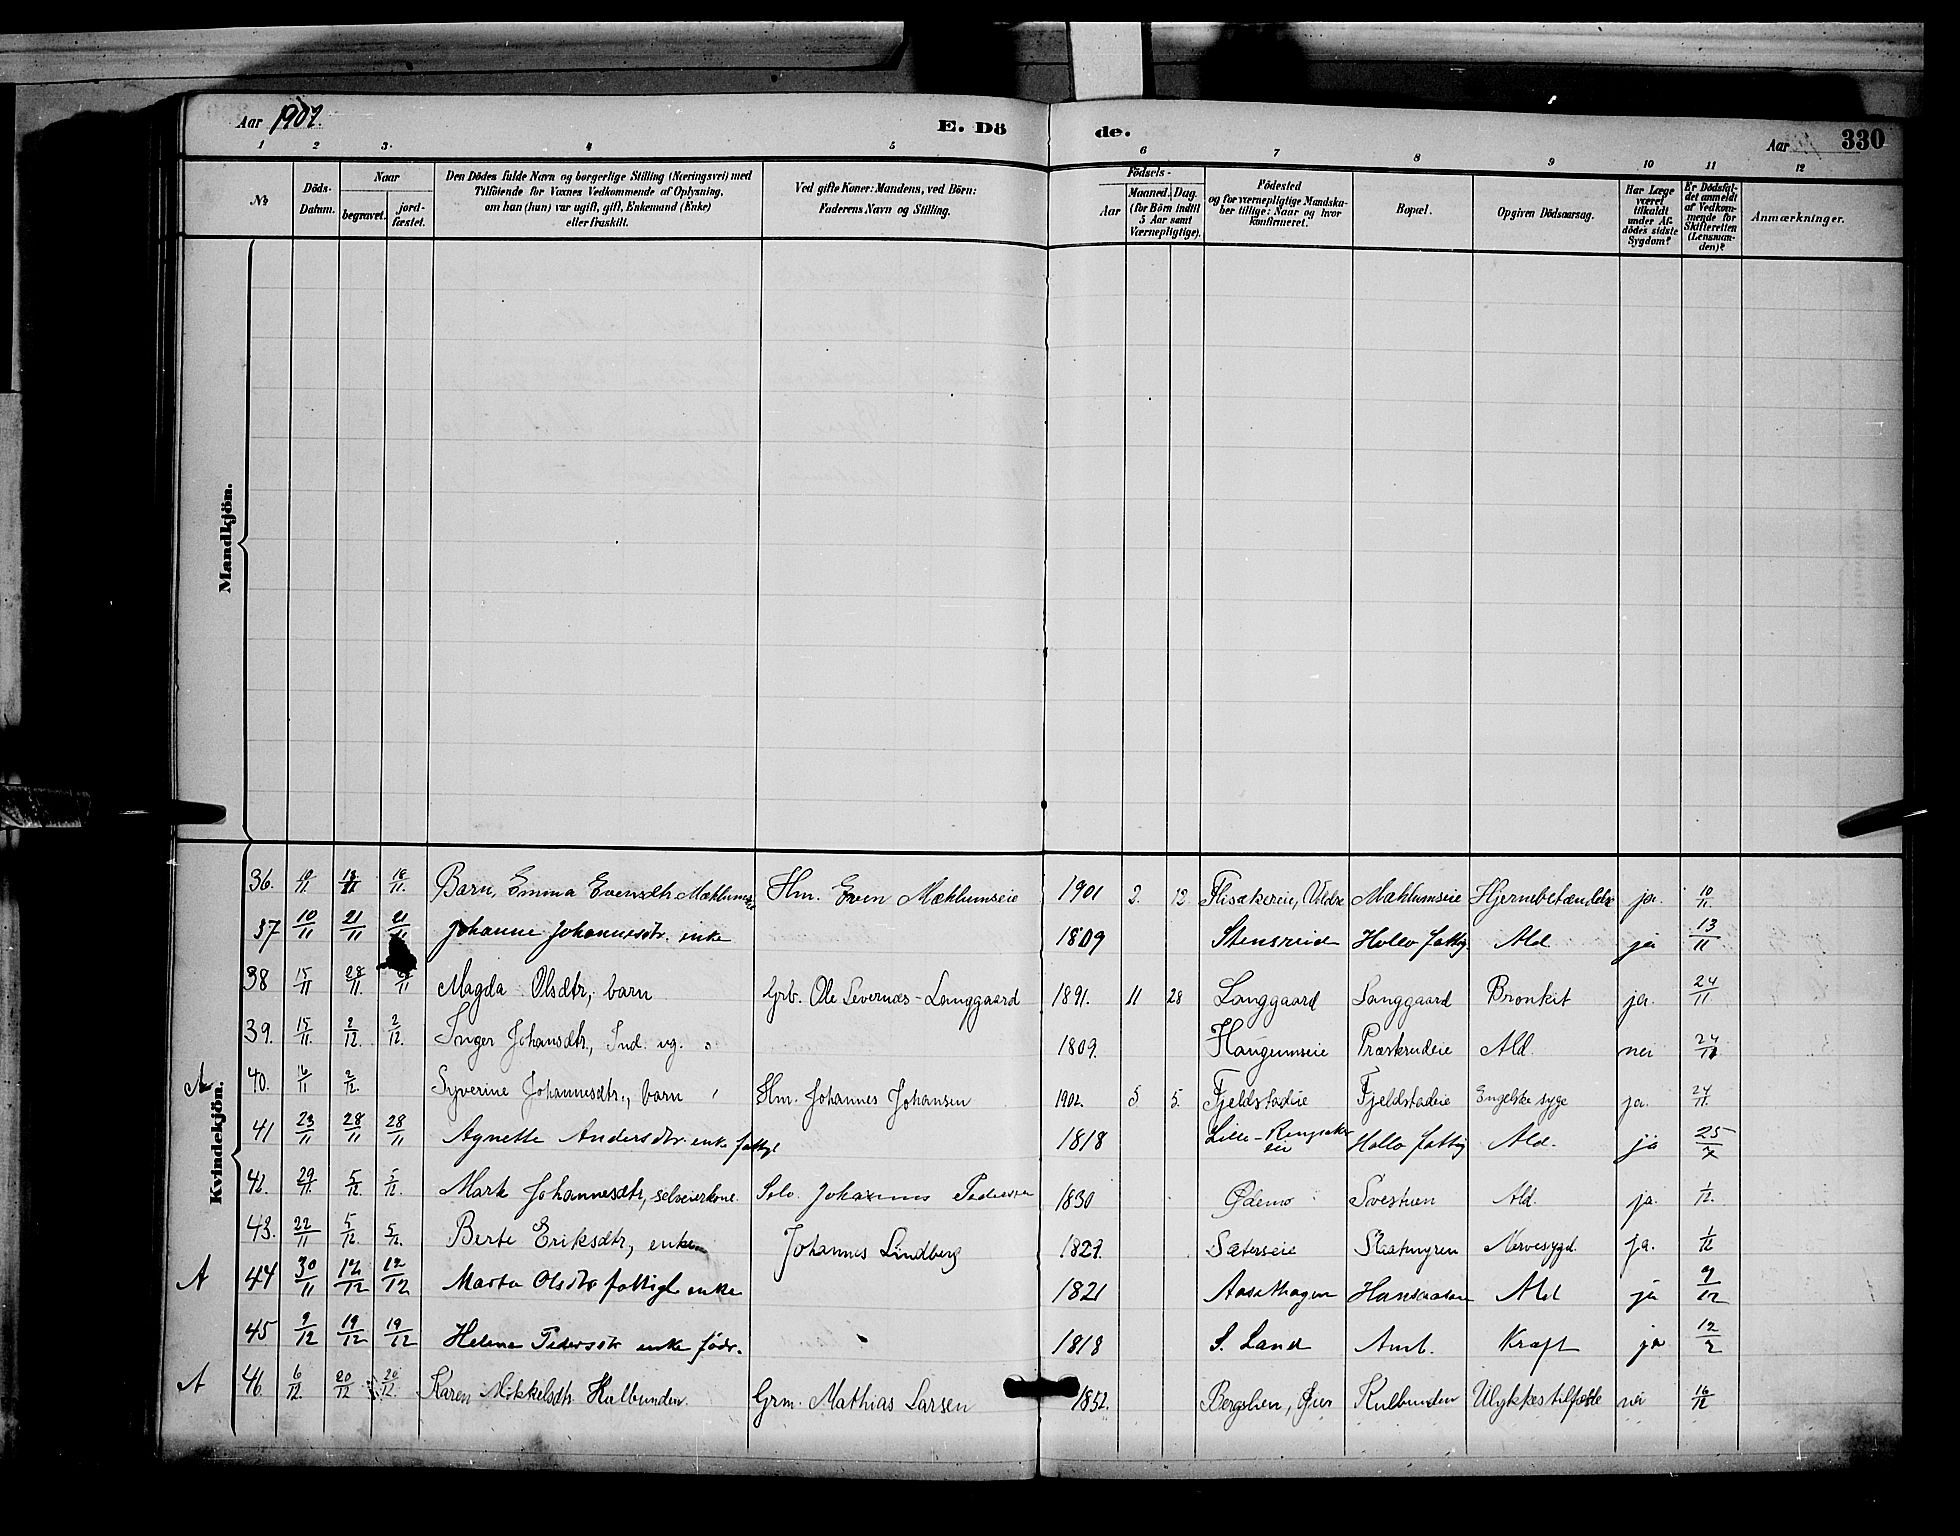 Aar 1902.
E. Dö
de.
Aar
330
1 2 3. 4 5 6 7 8 9 10 11 12
No
Döds-Datum.
Naar
begravet.
jord-fæstet.
Den Dödes fulde Navn og borgerlige Stilling (Næringsvei) med
Tilföiende for Vaxnes Vedkommende af Oplysning,
om han (hun) var ugift, gift, Enkemand (Enke)
eller fraskilt.
Ved gifte Koner: Mandens, ved Börn:
Faderens Navn og Stilling.
Födsels-
Aar
Maaned. Dag.
(for Börn indtil
5 Aar samt
Værnepligtige).
Födested
og for værnepligtige Mandska-
ber tillige: Naar og hvor
konfirmeret.
Bopæl.
Opgiven Dödsaarsag.
Har Læge
været
tilkaldt
under Af-
dödes sidste
Sygdom?
Er Dödsfal-
det anmeldt
af Vedkom-
mende for
Skifteretten
(Lensman-
den)?
Anmærkninger.
Mandkjön.
Kvindekjön.
36. 10/11 18/11 18/11. Barn, Emma Evensdtr. Mæhlumseie Hm. Even Mæhlumseie 1901 2. 12. Flisakereie, Mæhlumseie Hjernebetændelse ja. 10/11.
37 10/11 21/11 21/11 Johanne Johannesdtr. enke 1809 Stensreid Hollo fattig Ald ja 13/11
38 15/11 28/11 Magda Olsdtr, barn Grb. Ole Severnæs-Langgaard 1891. 11 28 Langgaard Langgaard Bronkit ja. 24/11
39. 15/11. 2/12. 2/12. Inger Johansdtr., Ind. ug. 1809. Haugumseie Præstrudeie Ald. nei 24/11
A 40. 16/11 2/12. Syverine Johannesdtr., barn Hm. Johannes Johansen 1902. 5 5. Fjeldstadeie Fjeldstadeie Engelske syge ja. 24/11.
41 23/11 28/11 28/11 Agnette Andersdtr. enke fattigl 1818 Lille-Ringsaker eie Hollo fattig Ald. ja 25/
42. 29/11. 5/12. 5/12. Marte Johannesdtr, selveierkone. Selv. Johannes Pedersen 1830 Ødemo Svestuen Ald. ja. 1/12.
43. 22/11 5/12. 5/12. Berte Eriksdtr, enke Johannes Lindberg 1827. Sæterseie Slaatmyren Nervesygd. ja. 1/12
A 44 30/11 12/12 12/12 Marta Olsdtr fattigl enke 1821 Aasathagen Hansaasen Ald ja 9/12
45 9/12 19/12 19/12 Helene Pedersdtr enke födr. 1818 S. Land Amb. Kræft ja 12/
A 46. 6/12. 20/12 20/12. Karen Mikkelsdtr. Kulbunden. Grm. Mathias Larsen 1852. Bergslien, Øier Kulbunden Ulykkestilfælde nei 16/12